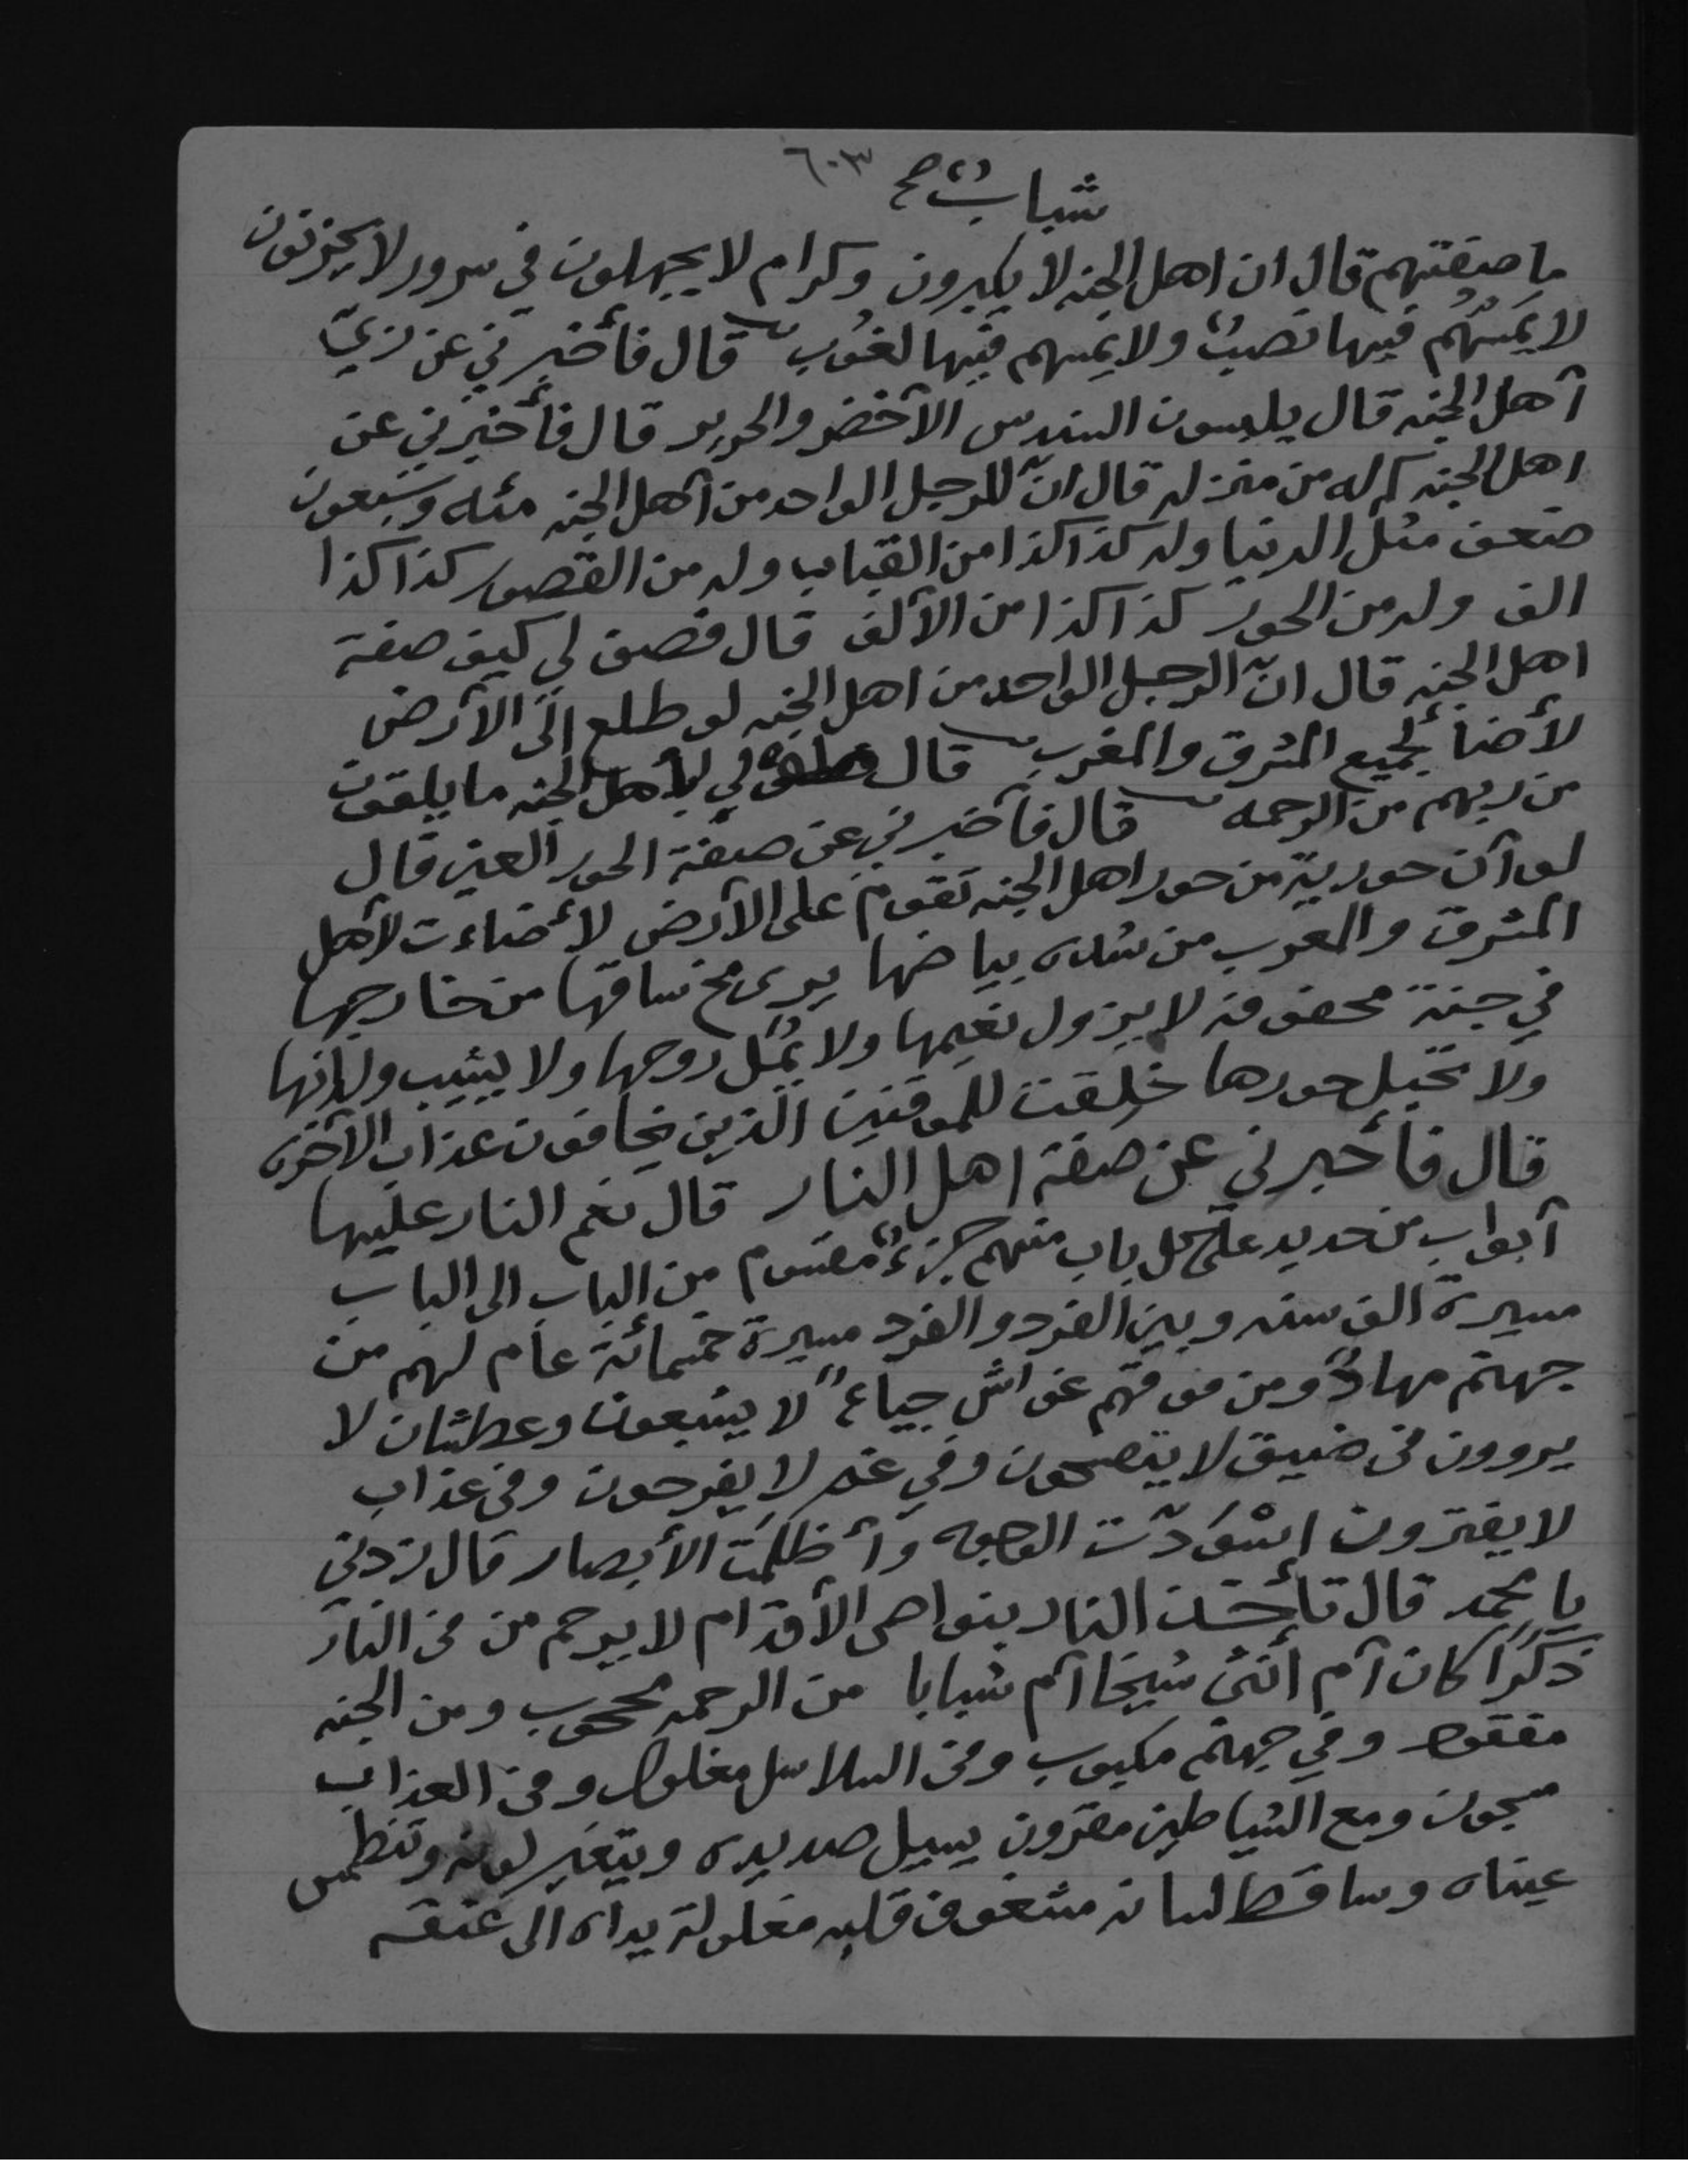 ٦٠٣
شبابٌ صح
ما صفتهم قال ان اهل الجنه لا يكبرون وكرام لا يجهلون في سرور لا يحزنون
لا يَمَسَّهُم فيها نصبٌ ولا يَمسهم فيها لغُوب قال فأخبرني عن زيّ
آهل الجنه قال يلبسون السندس الآخضر والحرير قال فأخبرني عن
اهل الجنه كم له من منزله قال انّ للرجل الواحد من آهل الجنه مئه وسَبعون
ضعف مثل الدنيا وله كذا كذا من القباب وله من القصور كذا كذا
الف وله من الحور كذا كذا من الآلف قال فصف لي كيف صفة
اهل الجنه قال انّ الرجل الواحد من اهل الجنه لو طلع الى الآرض
لأضأ لجميع المشرق والمغرب قال لي لأهل الجنه ما يلقون
من ربهم من الرحمه قال فأخبرني عن صفة الحور العين قال
لو آن حورية من حور اهل الجنه تقوم على الآرض لأضاءت لآهل
المشرق والمغرب من شده بياضها يرى مخ ساقها من خارجها
في جنة محفوفه لا يزول نعيمها ولا يمُل روحها ولا يشيب ولدانها
ولا تحبل حورها خلقت للموقنين الّذين يخافون عذاب الآخره
قال فأخبرني عن صفة اهل النار قال نعم النار عليها
آبواب من حديد على كل باب منهم جزءٌ مقسوم من الباب الى الباب
مسيرة الف سنه وبين الفرد والفرد مسيرة خمسمائة عام لهم من
جهنم مهادٌ ومن فوقهم غواش جياعٌ لا يشبعون وعطشان لا
يروون في ضيق لا يتصحون وفي غم لا يفرحون وفي عذاب
لا يفترون اسْوَدّت الوجوه وآظلمَت الأبصار قال زدني
يا محمد قال تأخذ النار بنواصى الآقدام لا يرحم من في النار
ذكرًا كان آم أنثى شيخا آم شبابا من الرحمه محجوب ومن الجنه
مفقود وفي جهنم مكبوب وفي السلاسل مغلول وفي العذاب
مسجون ومع الشياطين مقرون يسيل صديده ويتغير لونه وتنطمس
عيناه وساقط لسانه مشغوف قلبه مغلولة يداه الى عنقه